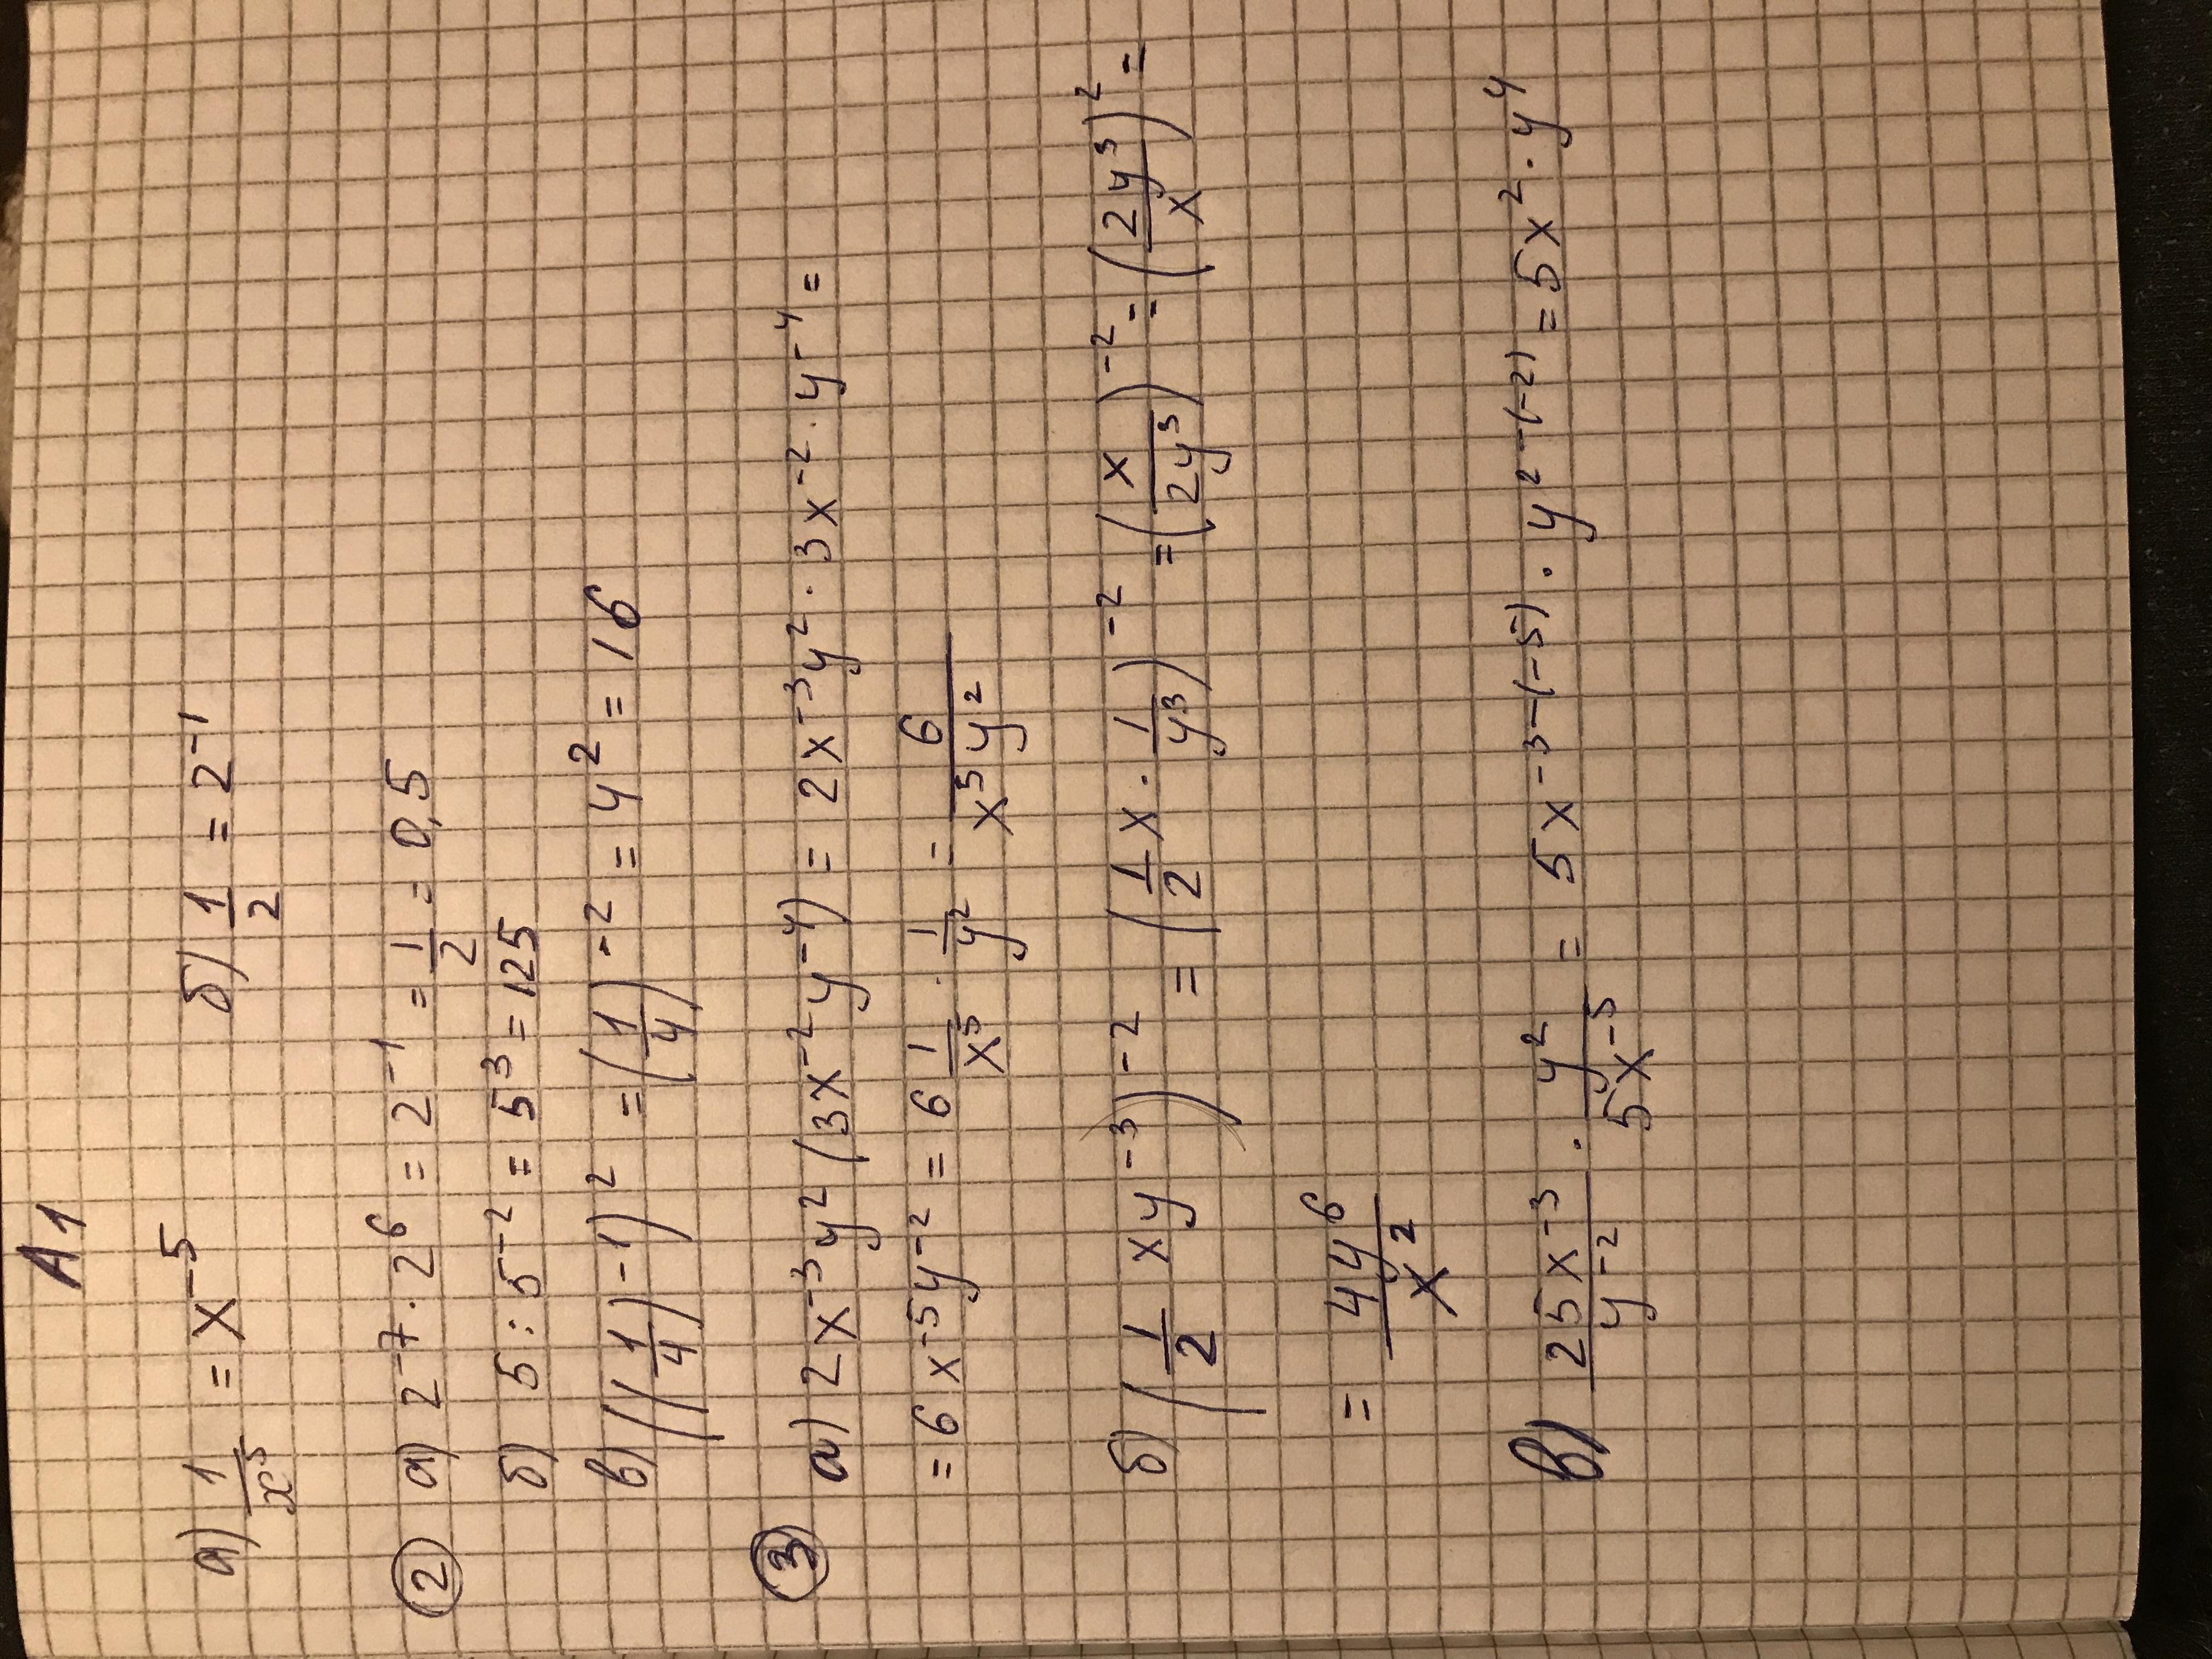 А1
а) 1/x⁵ = x⁻⁵ б) 1/2 = 2⁻¹
② а) 2⁻⁷ · 2⁶ = 2⁻¹ = 1/2 = 0,5
б) 5 : 5⁻² = 5³ = 125
в) ((1/4)⁻¹)² = (1/4)⁻² = 4² = 16
③ а) 2x⁻³y² (3x⁻²y⁻⁴) = 2x⁻³y² · 3x⁻² · y⁻⁴ =
= 6x⁻⁵y⁻² = 6 1/x⁵ · 1/y² = 6/x⁵y²
б) (1/2 xy⁻³)⁻² = (1/2 x · 1/y³)⁻² = (x/2y³)⁻² = (2y³/x)² =
= 4y⁶/x²
в) 25x⁻³/y⁻² · y²/5x⁻⁵ = 5x⁻³⁻⁽⁻⁵⁾ · y²⁻⁽⁻²⁾ = 5x² · y⁴